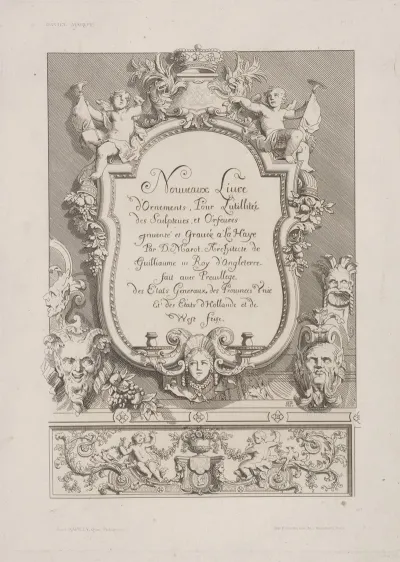 Nouveaux Liure
d'Ornements, Pour L'utillitée
des Sculpteurs, et Orfeures
jnvanté et Gravée a la Haye
Par D. Marot, Architecte de
Guillaume III Roy d'Angleterre.
fait avec Previllege
des Etats Generaux, des Provinces Vnie
Et des Etats d'Hollande et de
West frise.